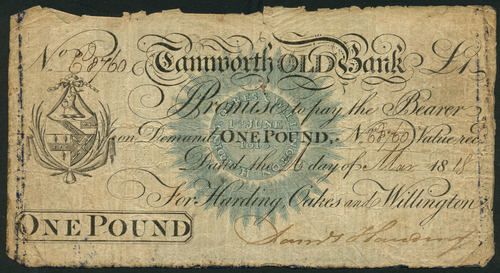 No E8760 Tamworth OLD Bank £1
I Promise to pay the Bearer
on Demand ONE POUND, No E8760 Value recd
JUNE
1816
Dated the day of Mar 1818
For Harding, Oakes and Willington
ONE POUND
Harding